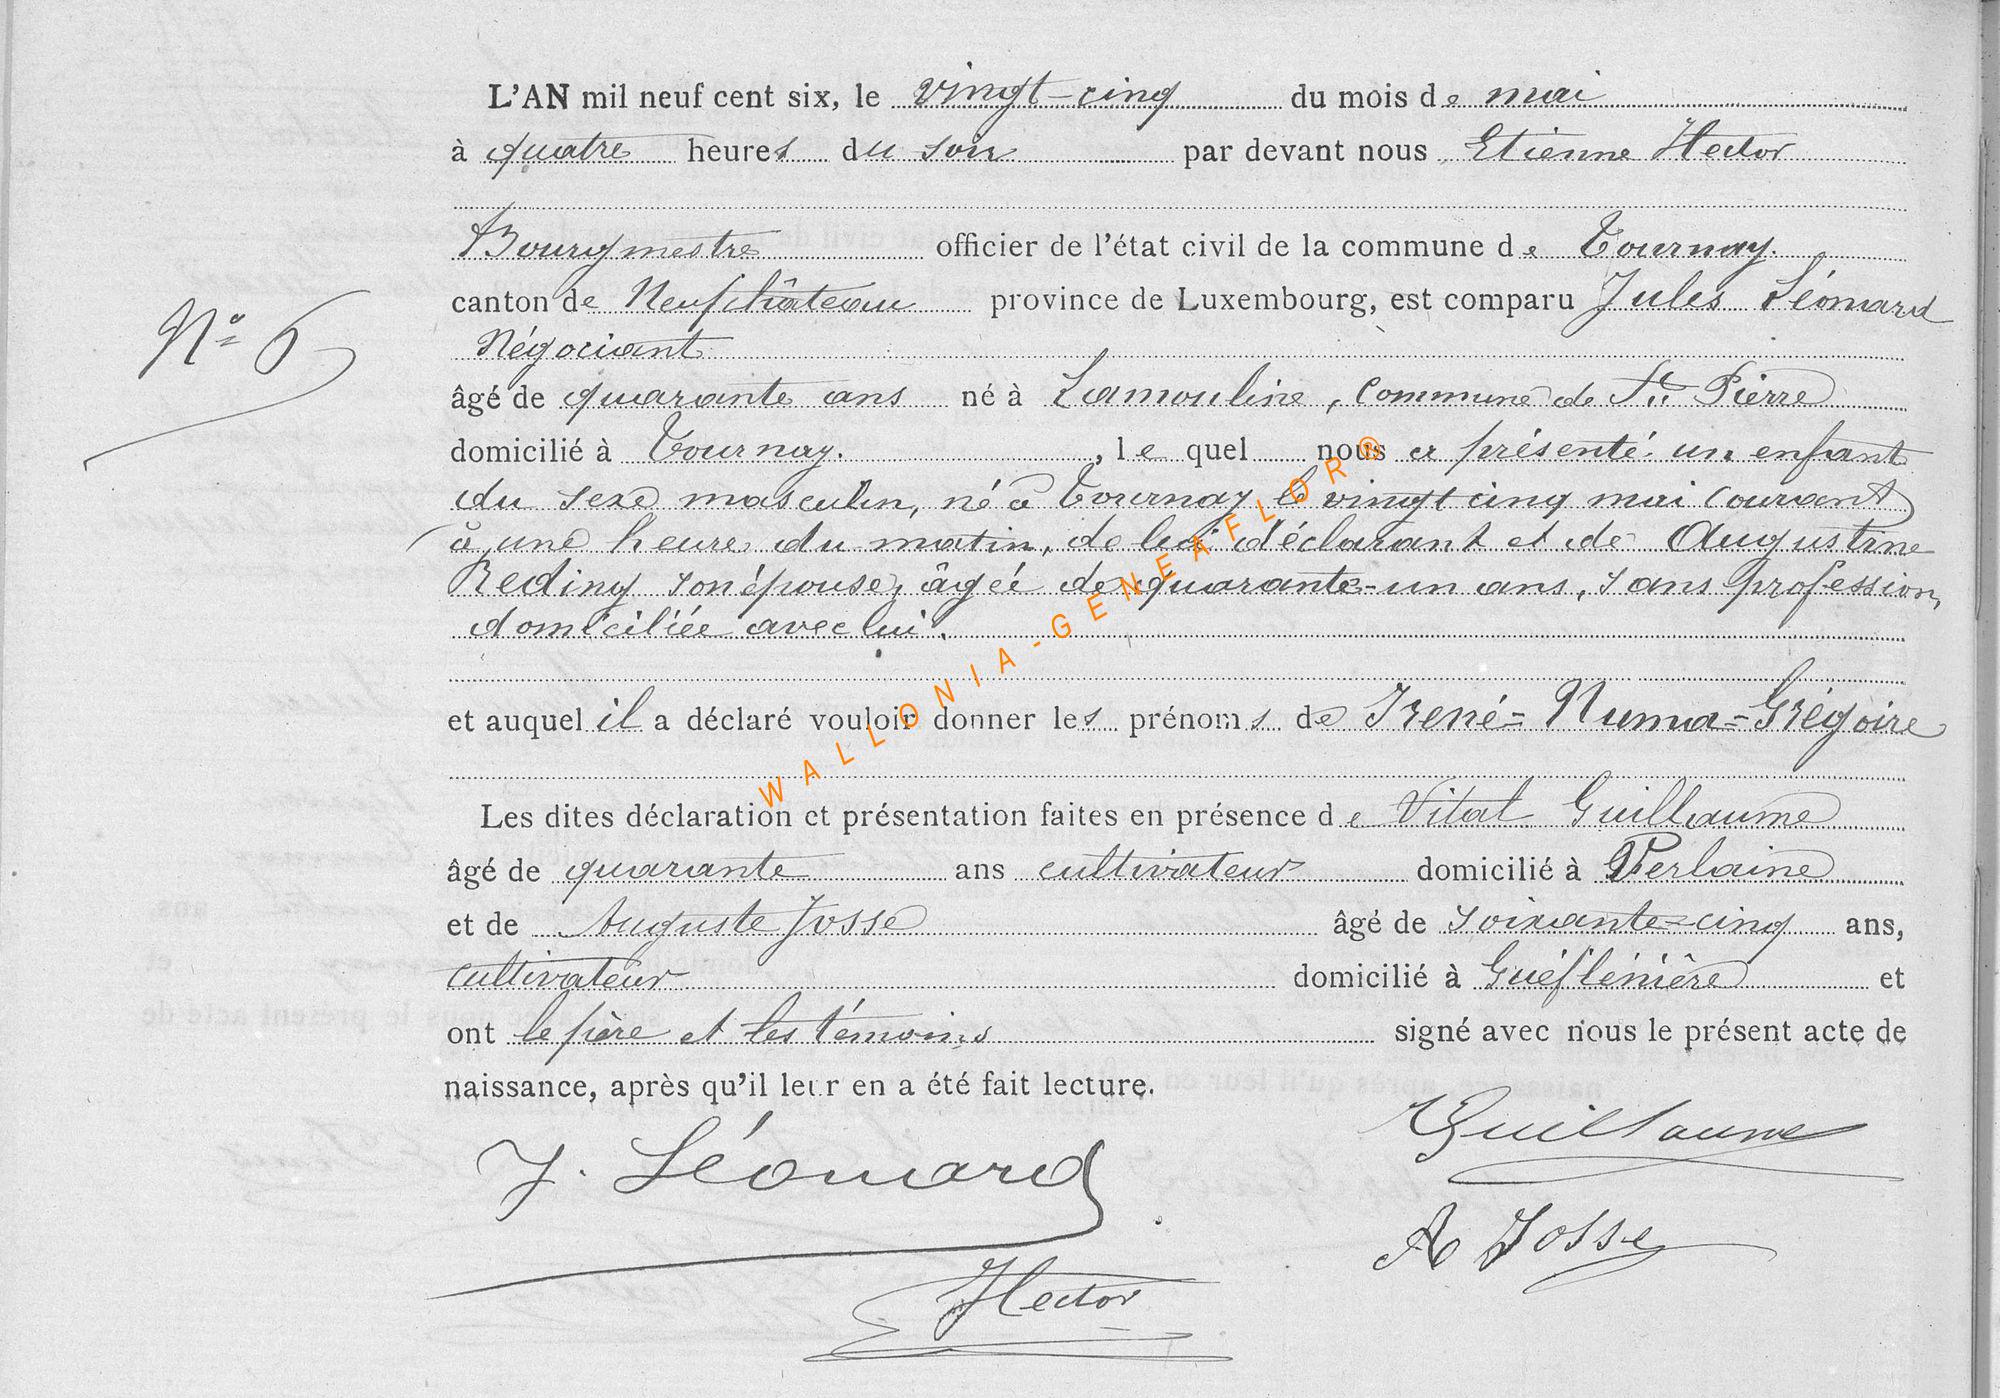 L'AN mil neuf cent six, le vingt-cinq du mois de mai
à quatre heures du soir par devant nous Etienne Hector
Bourgmestre officier de l'état civil de la commune de Tournay.
canton de Neufchâteau province de Luxembourg, est comparu Jules Léonard
Négociant
N° 6
âgé de quarante ans né à Lamouline, commune de St Pierre
domicilié à Tournay. , lequel nous a présenté un enfant
du sexe masculin, né à Tournay le vingt cinq mai courant
à une heure du matin, de lui déclarant et de Augustine
Reding son épouse, âgée de quarante-un ans, sans profession,
domiciliée avec lui.
et auquel il a déclaré vouloir donner les prénoms de Irené=Numa=Grégoire
Les dites déclaration et présentation faites en présence de Vital Guillaume
âgé de quarante ans cultivateur domicilié à Verlaine
et de Auguste Josse âgé de soixante-cinq ans,
cultivateur domicilié à et
ont le père et les témoins signé avec nous le présent acte de
naissance, après qu'il leur en a été fait lecture.
Guillaume
J. Léonard
A Josse
Hector
WALLONIA-GENEAFLOR®